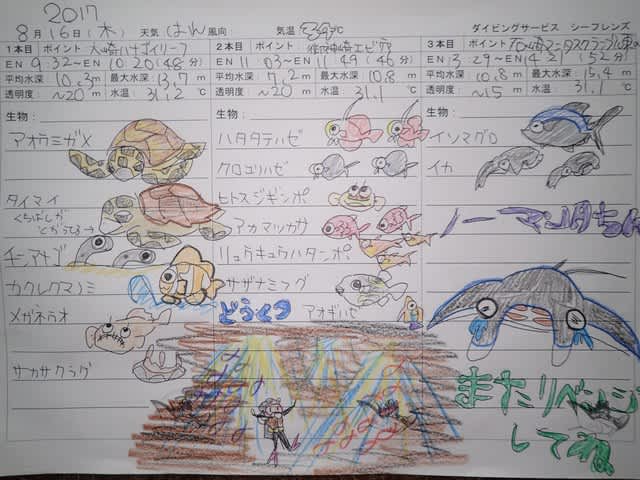 2017
8月16日(木) 天気 はれ 風向 気温 ℃ ダイビングサービス シーフレンズ
1本目 ポイント 大崎ハナゴイリーフ
EN 9:32〜EN 10:20(48分)
平均水深 10.3m 最大水深 13.7m
透明度 〜20m 水温 31.2℃
生物:
アオウミガメ
タイマイ
くちばしが
とがってる→
チンアナゴ
カクレクマノミ
メガネウオ
サカサクラゲ
2本目 ポイント
EN 11:03〜EN 11:49(46分)
平均水深 7.2m 最大水深 10.8m
透明度 〜20m 水温 31.1℃
生物:
ハタタテハゼ
クロユリハゼ
ヒトスジギンポ
アカマツカサ
リュウキュウハタンポ
サザナミフグ
どうくつ アオギハゼ
3本目 ポイント
EN 3:29〜EN 4:21(52分)
平均水深 10.8m 最大水深 15.4m
透明度 〜15m 水温 31.1℃
生物:
イソマグロ
イカ
ノーマンタちゃん
またリベンジ
してね